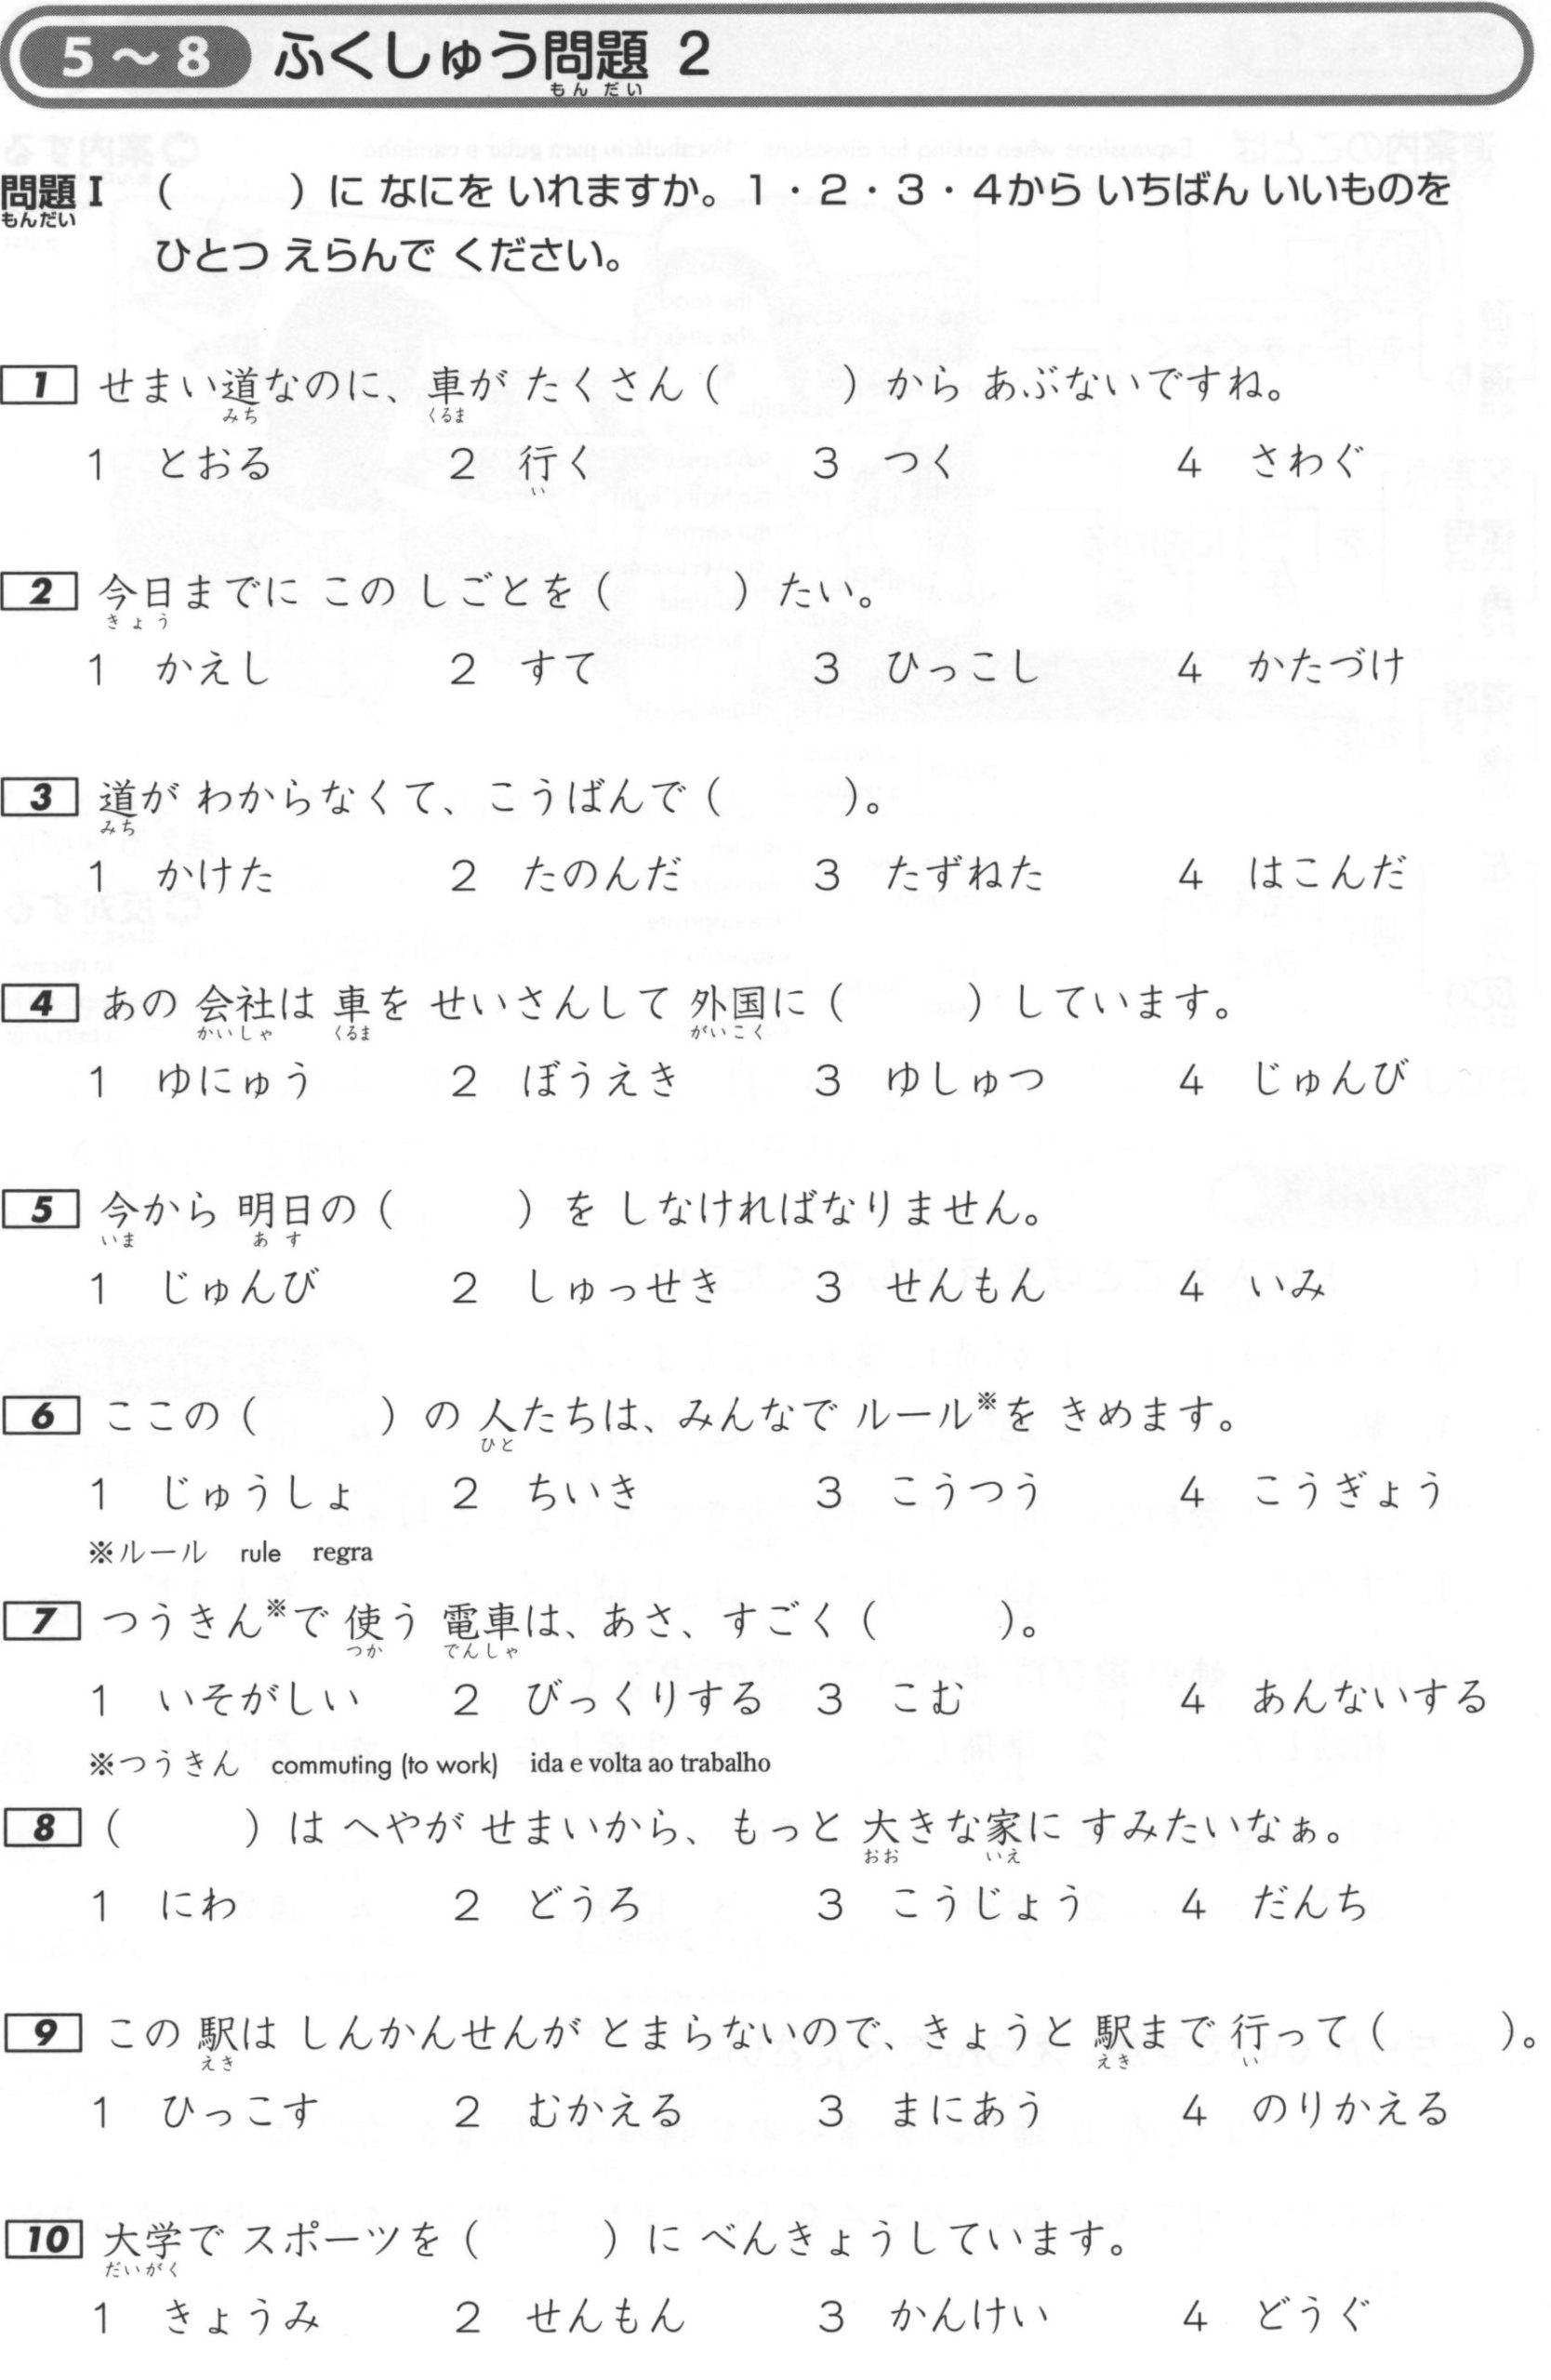 5～8 ふくしゅう問題 2
もんだい
問題Ⅰ （　　）に なにを いれますか。1・2・3・4から いちばん いいものを
もんだい
ひとつ えらんで ください。
1 せまい道なのに、車が たくさん（　　）から あぶないですね。
みち くるま
1 とおる 2 行く 3 つく 4 さわぐ
い
2 今日までに この しごとを（　　）たい。
きょう
1 かえし 2 すて 3 ひっこし 4 かたづけ
3 道が わからなくて、こうばんで（　　）。
みち
1 かけた 2 たのんだ 3 たずねた 4 はこんだ
4 あの 会社は 車を せいさんして 外国に（　　）しています。
かいしゃ くるま がいこく
1 ゆにゅう 2 ぼうえき 3 ゆしゅつ 4 じゅんび
5 今から 明日の（　　）を しなければなりません。
いま あす
1 じゅんび 2 しゅっせき 3 せんもん 4 いみ
6 ここの（　　）の 人たちは、みんなで ルール※を きめます。
ひと
1 じゅうしょ 2 ちいき 3 こうつう 4 こうぎょう
※ルール rule regra
7 つうきん※で 使う 電車は、あさ、すごく（　　）。
つか でんしゃ
1 いそがしい 2 びっくりする 3 こむ 4 あんないする
※つうきん commuting (to work) ida e volta ao trabalho
8 （　　）は へやが せまいから、もっと 大きな家に すみたいなぁ。
おお いえ
1 にわ 2 どうろ 3 こうじょう 4 だんち
9 この 駅は しんかんせんが とまらないので、きょうと 駅まで 行って（　　）。
えき えき い
1 ひっこす 2 むかえる 3 まにあう 4 のりかえる
10 大学で スポーツを（　　）に べんきょうしています。
だいがく
1 きょうみ 2 せんもん 3 かんけい 4 どうぐ